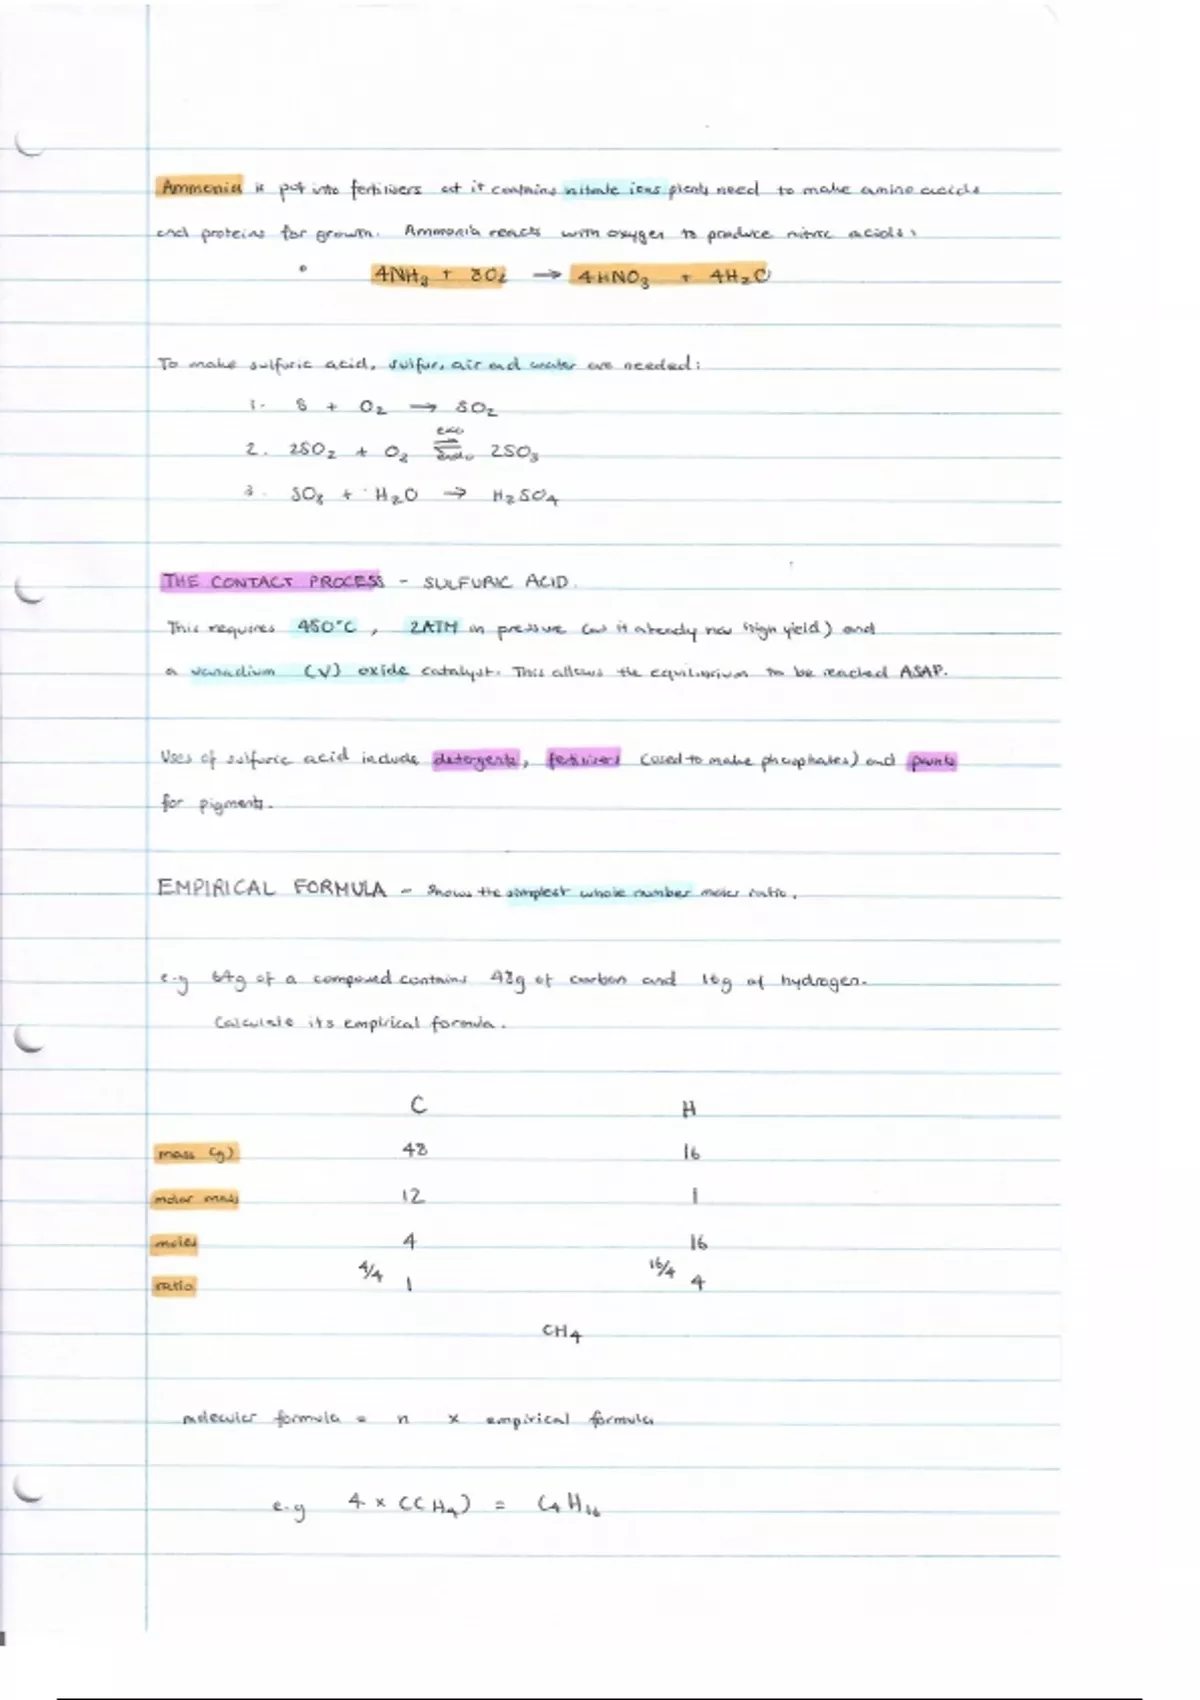 Ammonia is put into fertilisers as it contains nitrate ions plants need to make amino acids
and proteins for growth. Ammonia reacts with oxygen to produce nitric acids:
4NH3 + 8O2 → 4HNO3 + 4H2O
To make sulfuric acid, sulfur, air and water are needed:
1. S + O2 → SO2
exo
2. 2SO2 + O2 ⇌ 2SO3
endo
3. SO3 + H2O → H2SO4
THE CONTACT PROCESS - SULFURIC ACID.
This requires 450°C, 2ATM in pressure (as it already has high yield) and
a vanadium (V) oxide catalyst. This allows the equilibrium to be reached ASAP.
Uses of sulfuric acid include detergents, fertilisers (used to make phosphates) and paints
for pigments.
EMPIRICAL FORMULA - Shows the simplest whole number moles ratio.
e.g 64g of a compound contains 48g of carbon and 16g of hydrogen.
Calculate its empirical formula.
C H
mass (g) 48 16
molar mass 12 1
moles 4 16
ratio 4/4 1 16/4 4
CH4
molecular formula = n x empirical formula
e.g 4 x (CH4) = C4H16